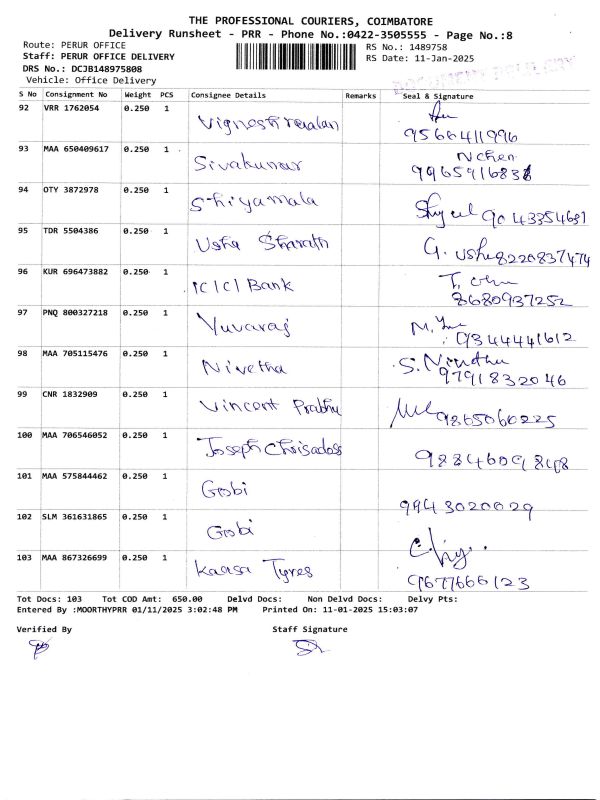 THE PROFESSIONAL COURIERS, COIMBATORE
Delivery Runsheet - PRR - Phone No.:0422-3505555 - Page No.:8
Route: PERUR OFFICE
RS No.: 1489758
Staff: PERUR OFFICE DELIVERY
RS Date: 11-Jan-2025
DRS No.: DCJB148975808
Vehicle: Office Delivery
S No Consignment No Weight PCS Consignee Details Remarks Seal & Signature
92 VRR 1762054 0.250 1
9566411996
93 MAA 650409617 0.250 1 Sivakumar
94 OTY 3872978 0.250 1 Shiyamala
9043354631
95 TDR 5504386 0.250 1 Usha Sharath G. Usha 8220837474
96 KUR 696473882 0.250 1 ICICI Bank
8680937252
97 PNQ 800327218 0.250 1 Yuvaraj
9344441612
98 MAA 705115476 0.250 1 Nivetha
9791832046
99 CNR 1832909 0.250 1 Vincent Prabhu 9865060225
100 MAA 706546052 0.250 1 Joseph Chrisadoss
101 MAA 575844462 0.250 1 Gobi
9943020029
102 SLM 361631865 0.250 1 Gobi
103 MAA 867326699 0.250 1 Kaasa Tyres
9677666123
Tot Docs: 103 Tot COD Amt: 650.00 Delvd Docs: Non Delvd Docs: Delvy Pts:
Entered By :MOORTHYPRR 01/11/2025 3:02:48 PM Printed On: 11-01-2025 15:03:07
Verified By Staff Signature